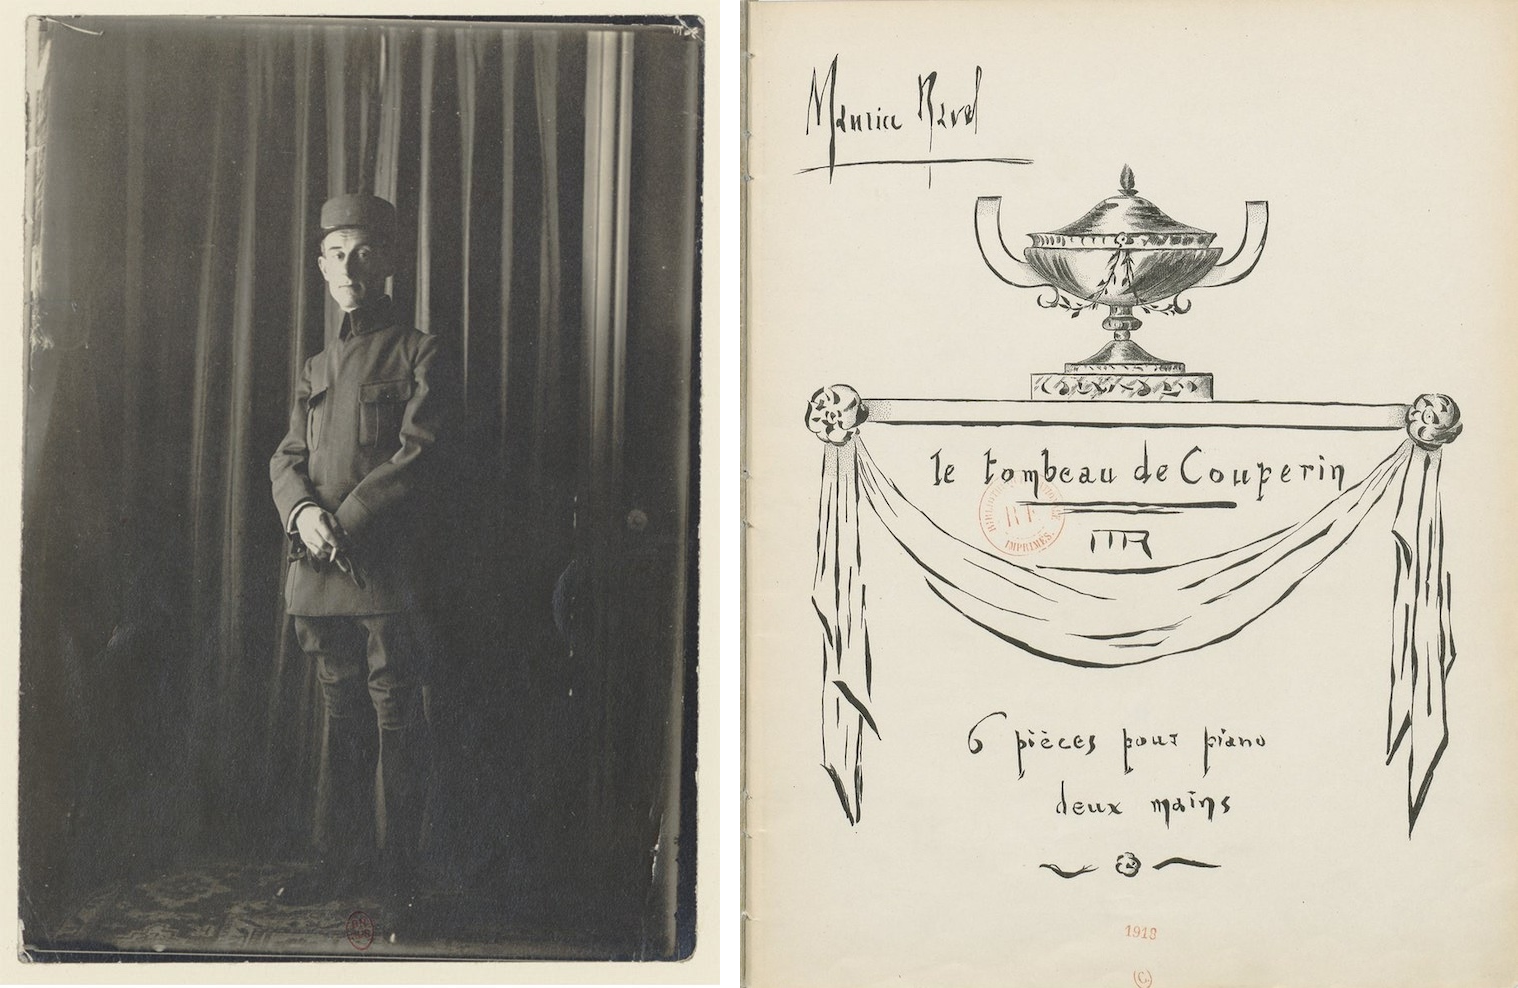 Maurice Ravel
le tombeau de Couperin
BIBLIOTHÈQUE NATIONALE
R F
IMPRIMÉS.
MR
6 pièces pour piano
deux mains
1918
(C.)